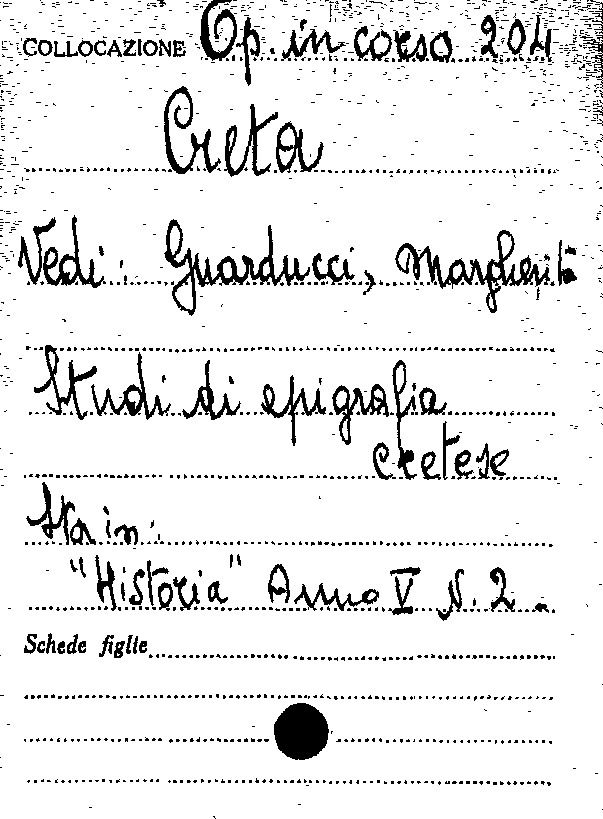 COLLOCAZIONE Op. in corso 204
Creta
Vedi: Guarducci, Margherita
Studi di epigrafia
cretese
Sta in:
"Historia" Anno V N. 2.
Schede figlie